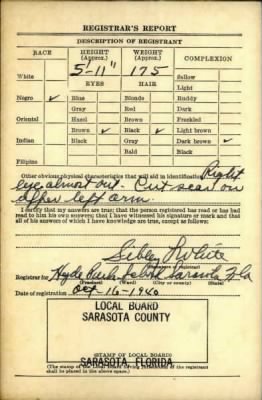 REGISTRAR'S REPORT
DESCRIPTION OF REGISTRANT
RACE HEIGHT (Approx.) WEIGHT (Approx.) COMPLEXION
5'-11" 175
White EYES HAIR Sallow
Light
Negro ✓ Blue Blonde Ruddy
Gray Red Dark
Oriental Hazel Brown Freckled
Brown ✓ Black ✓ Light brown
Indian Black Gray Dark brown ✓
Bald Black
Filipino
Other obvious physical characteristics that will aid in identification Right
eye almost out. Cut scar on
upper left arm.
I certify that my answers are true; that the person registered has read or has had
read to him his own answers; that I have witnessed his signature or mark and that
all of his answers of which I have knowledge are true, except as follows:
Sibley White
(Signature of registrar)
Registrar for Hyde Park Sarasota Fla
(Precinct) (Ward) (City or county) (State)
Date of registration Oct-16-1940
LOCAL BOARD
SARASOTA COUNTY
(STAMP OF LOCAL BOARD)
SARASOTA, FLORIDA
(The stamp of the Local Board having jurisdiction of the registrant
shall be placed in the above space.)